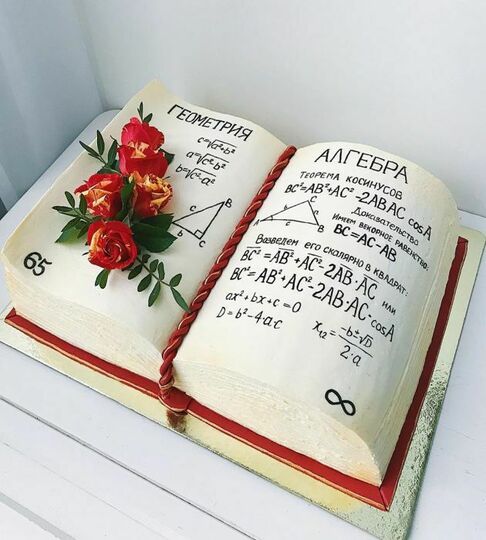 ГЕОМЕТРИЯ
c=√a²+b²
a=√c²-b²
b=√c²-a²
B
c
a
A
b
C
65
АЛГЕБРА
ТЕОРЕМА КОСИНУСОВ
BC²=AB²+AC²-2AB·AC cosA
Доказательство
Имеем векорное равенство:
BC=AC-AB
Возведем его скалярно в квадрат:
BC²=AB²+AC²-2AB·AC или
BC²=AB²+AC²-2AB·AC·cosA
ax²+bx+c=0
D=b²-4·a·c
x₁₂=-b±√D/2·a
∞